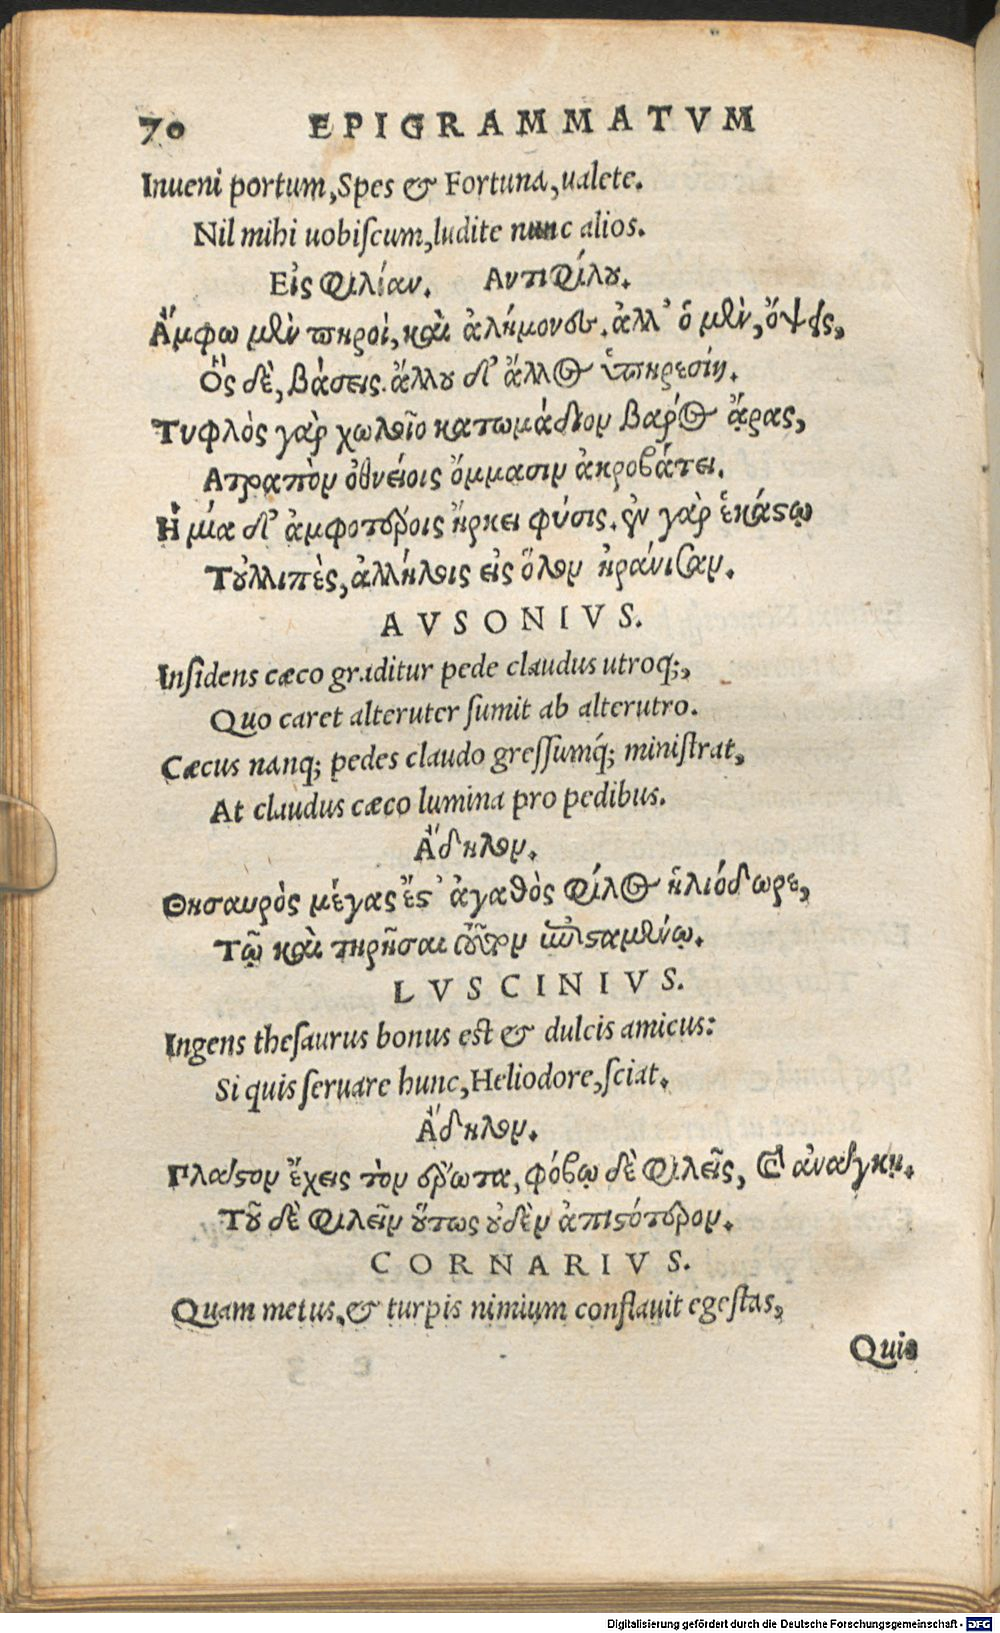 70 EPIGRAMMATVM
Inueni portum, Spes & Fortuna, ualete.
Nil mihi uobiſcum, ludite nunc alios.
Εἰς φιλίαν. Αντιφίλου.
Ἄμφω μὲν πηροὶ, καὶ ἀλήμονες. ἀλλ' ὁ μὲν, ὄψεις,
Ὃς δὲ, βάσεις. ἄλλου δ' ἄλλος ὑπηρεσίη.
Τυφλὸς γὰρ χωλοῖο κατωμάδιον βάρος ἄρας,
Ατραπὸν ὀθνείοις ὄμμασιν ἀκροβάτει.
Ἡ μία δ' ἀμφοτέροις ἤρκει φύσις. ἐν γὰρ ἑκάστῳ
Τοὐλλιπὲς, ἀλλήλοις εἰς ὅλον ἠράνισαν.
AVSONIVS.
Inſidens cæco graditur pede claudus utroq;,
Quo caret alteruter ſumit ab alterutro.
Cæcus nanq; pedes claudo greſſumq́; miniſtrat,
At claudus cæco lumina pro pedibus.
Ἄδηλον.
Θησαυρὸς μέγας ἔστ' ἀγαθὸς φίλος ἡλιόδωρε,
Τῷ καὶ τηρῆσαι τοῦτον ἐπισταμένῳ.
LVSCINIVS.
Ingens theſaurus bonus eſt & dulcis amicus:
Si quis ſeruare hunc, Heliodore, ſciat.
Ἄδηλον.
Πλαστὸν ἔχεις τὸν ἔρωτα, φόβῳ δὲ φιλεῖς, καὶ ἀνάγκῃ.
Τοῦ δὲ φιλεῖν οὕτως οὐδὲν ἀπιστότερον.
CORNARIVS.
Quam metus, & turpis nimium conflauit egeſtas,
Quis
Digitalisierung gefördert durch die Deutsche Forschungsgemeinschaft - DFG